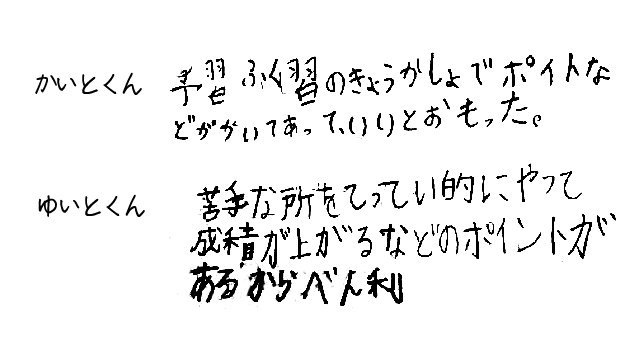 かいとくん 予習ふく習のきょうかしょでポイトな
どがかいてあって、いいとおもった。
ゆいとくん 苦手な所をてってい的にやって
成積が上がるなどのポイントが
あるからべん利